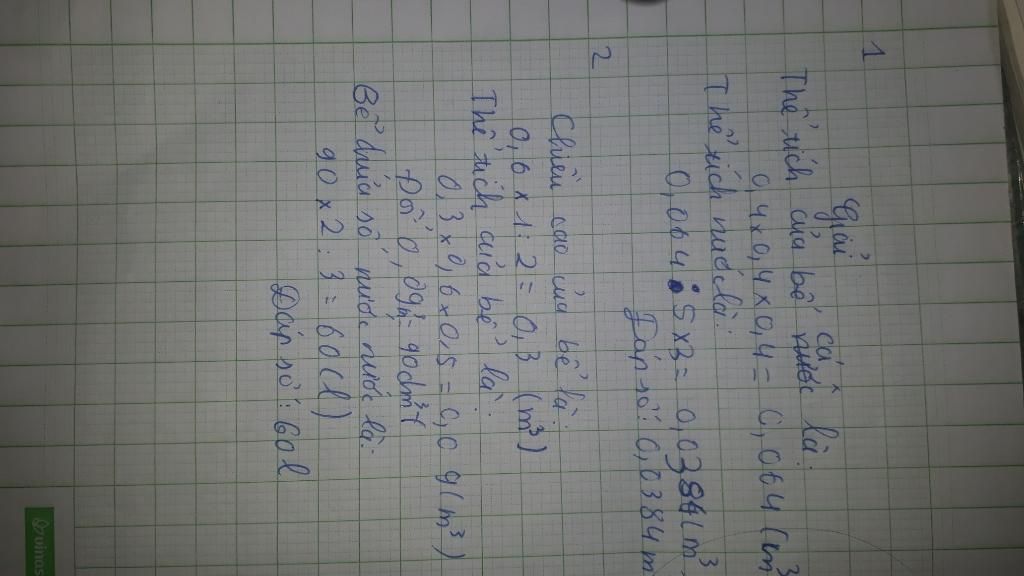 1
Giải
Thể tích của bể cá là:
0,4 x 0,4 x 0,4 = 0,064 (m³
Thể tích nước là:
0,064 : 5 x 3 = 0,0384 (m³
Đáp số: 0,0384 m
2
Chiều cao của bể là:
0,6 x 1 : 2 = 0,3 (m³)
Thể tích của bể là:
0,3 x 0,6 x 0,5 = 0,09 (m³)
Đổi 0,09 = 90dm³
Bể chứa số nước nước là:
90 x 2 : 3 = 60 (l)
Đáp số: 60l